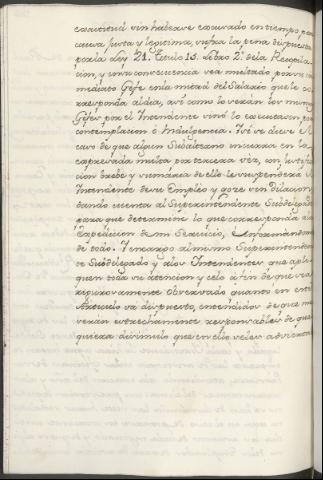 experiencia sin haberse escusado en tiempo por
causa justa y legitima, sufra la pena dispuesta
por la Ley 21. Titulo 15. Libro 2.º de la Recopila-
cion, y en su consecuencia sea multado por su in-
mediato Gefe en la mitad del Salario que le co-
rresponda al dia, así como lo serán los mismos
Gefes por el Intendente sino lo executasen por
contemplacion o Indulgencia. Y si se diere el
caso de que algun Subalterno incurra en la
expresada multa por tercera vez, con justifica-
cion breve y sumaria de ello le suspenderá el
Intendente de su Empleo y goze sin dilacion
dando cuenta al Superintendente Subdelegado
para que determine lo que corresponda a la
Expedicion de mi Servicio, informandome
de todo. Y encargo al mismo Superintenden-
te Subdelegado y a los Intendentes que apli-
quen toda su atencion y celo a fin de que sea
rigurosamente observado quanto en este
Articulo va dispuesto, entendidos de que me
serán estrechamente responsables de qual-
quiera disimulo que en ello